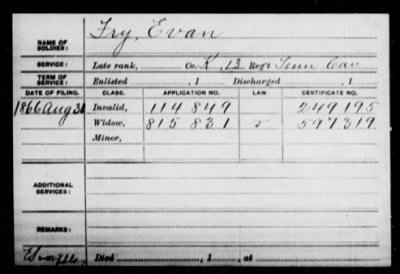 NAME OF SOLDIER: Fry, Evan
SERVICE: Late rank, Co. K, 13 Reg't Tenn Cav
TERM OF SERVICE: Enlisted , 1 Discharged , 1
DATE OF FILING. CLASS. APPLICATION NO. LAW. CERTIFICATE NO.
1866 Aug 3 Invalid, 114 849 249 195
Widow, 815 831 597319
Minor,
ADDITIONAL SERVICES:
REMARKS:
Died , 1 , at